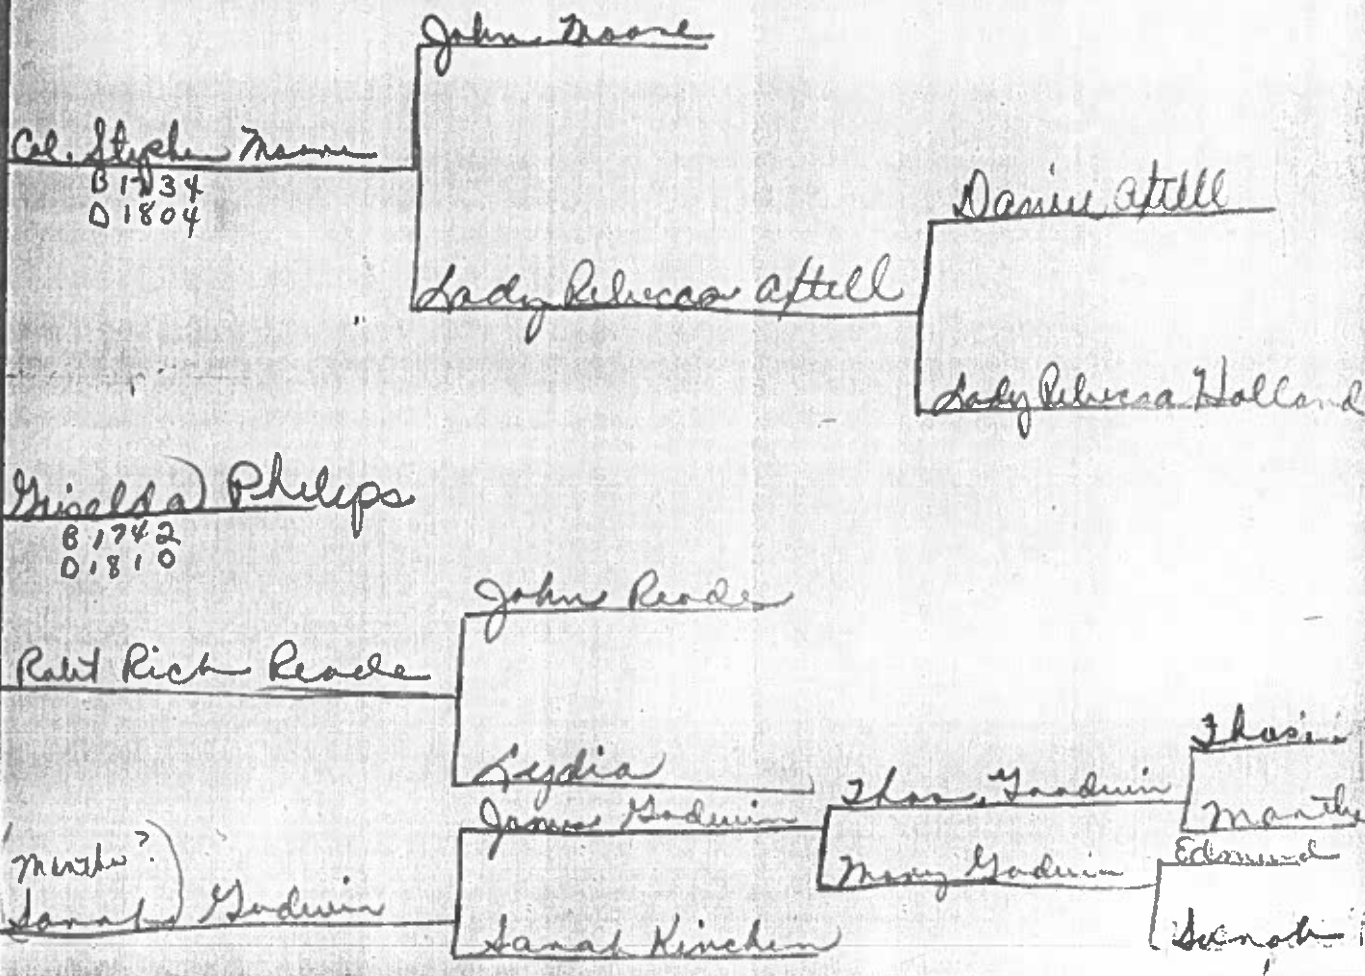 John Moore
Col. Stephen Moore
B 1734
D 1804
Daniel Axtell
Lady Rebecca Axtell
Lady Rebecca Holland
Giselda) Philips
B 1742
D 1810
John Reade
Robt Rich Reade
Lydia
Thos.
James Godwin
Thos. Godwin
Martha
Martha?
Mary Godwin
Edmund
Sarah) Godwin
Sarah Kinchen